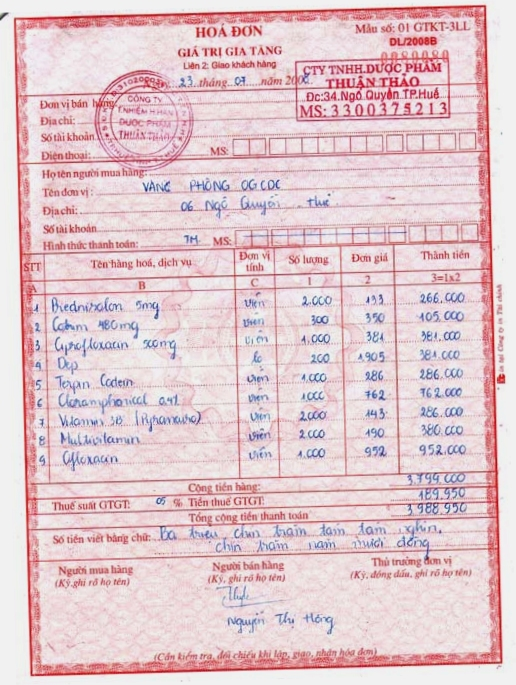 HOÁ ĐƠN
GIÁ TRỊ GIA TĂNG
Liên 2: Giao khách hàng
Mẫu số: 01 GTKT-3LL
DL/2008B
0080080
23 tháng 07 năm 2008
CTY TNHH.DƯỢC PHẨM
THUẬN THẢO
Đc:34.Ngô Quyền TP.Huế
MS: 3300375213
CÔNG TY
DƯỢC PHẨM
THUẬN THẢO
Đơn vị bán hàng
Địa chỉ:
Số tài khoản
Điện thoại: MS:
Họ tên người mua hàng:
Tên đơn vị: VĂNG PHÒNG OGCDC
Địa chỉ: 06 Ngô Quyền Huế
Số tài khoản
Hình thức thanh toán: TM MS:
STT Tên hàng hoá, dịch vụ Đơn vị tính Số lượng Đơn giá Thành tiền
A B C 1 2 3=1x2
1 Prednisolon 5mg viên 2.000 133 266.000
2 480mg viên 300 350 105.000
3 Ciprofloxacin 500mg viên 1.000 381 381.000
4 Dep lo 200 1905 381.000
5 Terpin Codein viên 1.000 286 286.000
6 Cloramphenicol 0.4% viên 1000 762 762.000
7 Vitamin viên 2000 143 286.000
8 Multivitamin viên 2000 190 380.000
9 Ofloxacin viên 1.000 952 952.000
Cộng tiền hàng: 3.799.000
Thuế suất GTGT: 05 % Tiền thuế GTGT: 189.950
Tổng cộng tiền thanh toán 3.988.950
Số tiền viết bằng chữ: Ba triệu chín trăm tám tám nghìn,
chín trăm năm mươi đồng
Người mua hàng Người bán hàng Thủ trưởng đơn vị
(Ký, ghi rõ họ tên) (Ký, ghi rõ họ tên) (Ký, đóng dấu, ghi rõ họ tên)
Nguyễn Thị Hồng
(Cần kiểm tra, đối chiếu khi lập, giao, nhận hóa đơn)